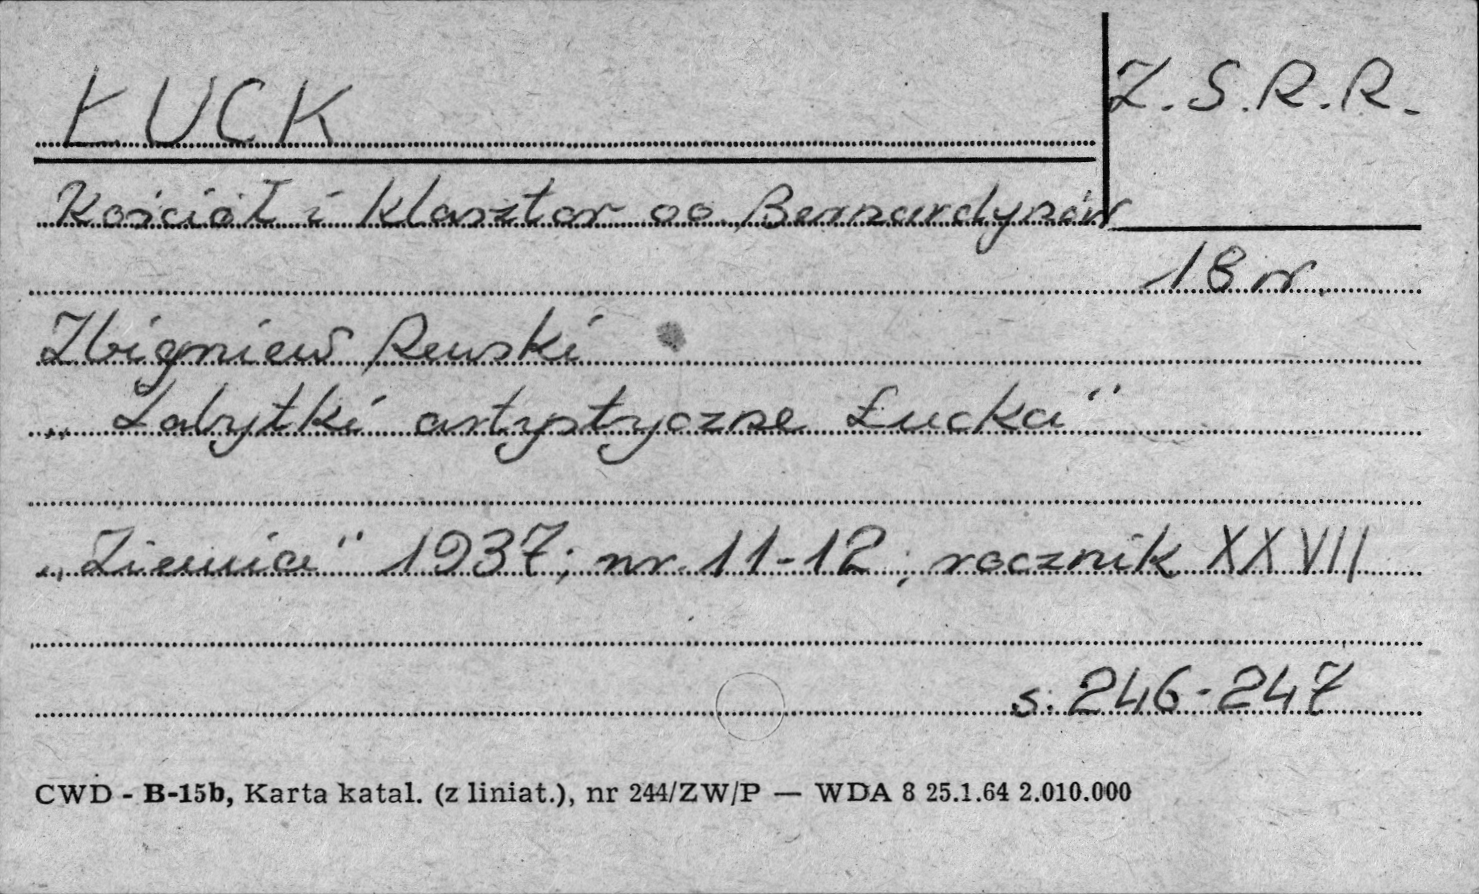 ŁUCK
Z.S.R.R.
Kościół i klasztor oo. Bernardynów
18 w.
Zbigniew Rewski
„Zabytki artystyczne Łucka"
„Ziemia" 1937; nr. 11-12; rocznik XXVII
s. 246-247
CWD - B-15b, Karta katal. (z liniat.), nr 244/ZW/P — WDA 8 25.1.64 2.010.000